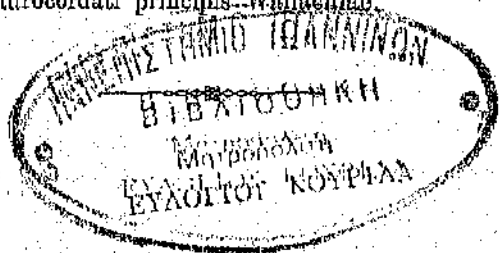 principis Wallachiae.
ΠΑΝΕΠΙΣΤΗΜΙΟ ΙΩΑΝΝΙΝΩΝ
ΒΙΒΛΙΟΘΗΚΗ
Μητροπολίτη
ΕΥΛΟΓΙΟΥ ΚΟΥΡΙΛΑ